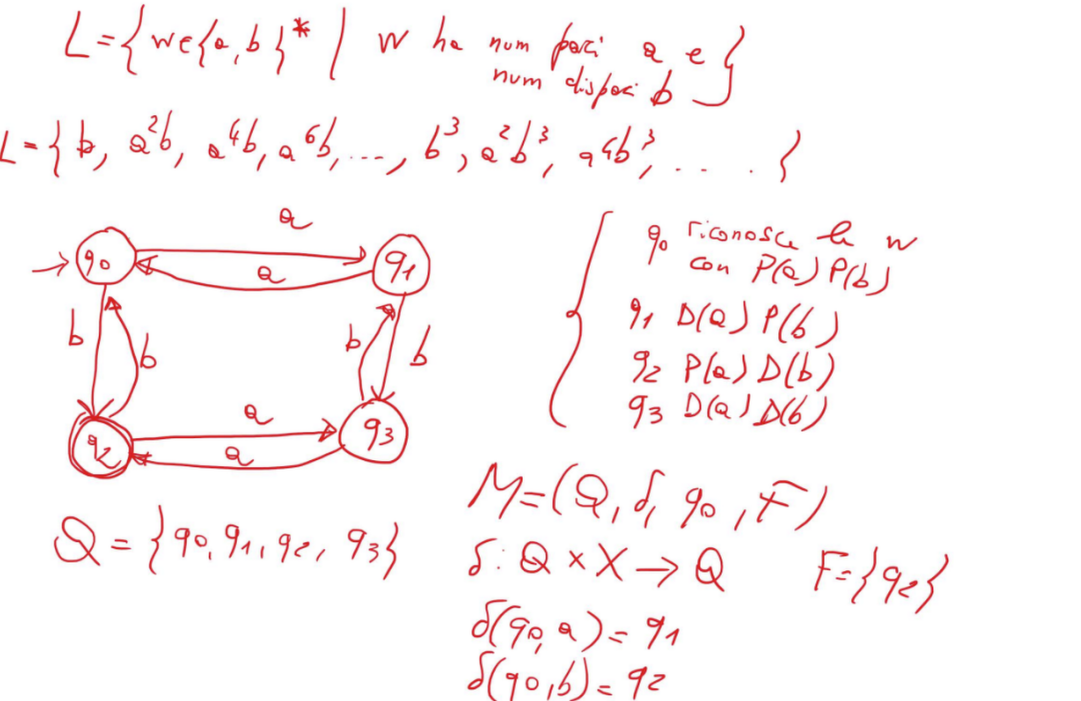 L={w∈{a,b}* | w ha num pari a e}
num dispari b
L={b, a²b, a⁴b, a⁶b,..., b³, a²b³, a⁴b³, ..... {
a
q0
q1
a
b
b
b
b
a
q2
q3
a
q0 riconosce le w
con P(a) P(b)
q1 D(a) P(b)
q2 P(a) D(b)
q3 D(a) D(b)
M=(Q, δ, q0, F)
Q = {q0, q1, q2, q3}
δ: Q × X → Q
F={q2}
δ(q0, a) = q1
δ(q0, b) = q2